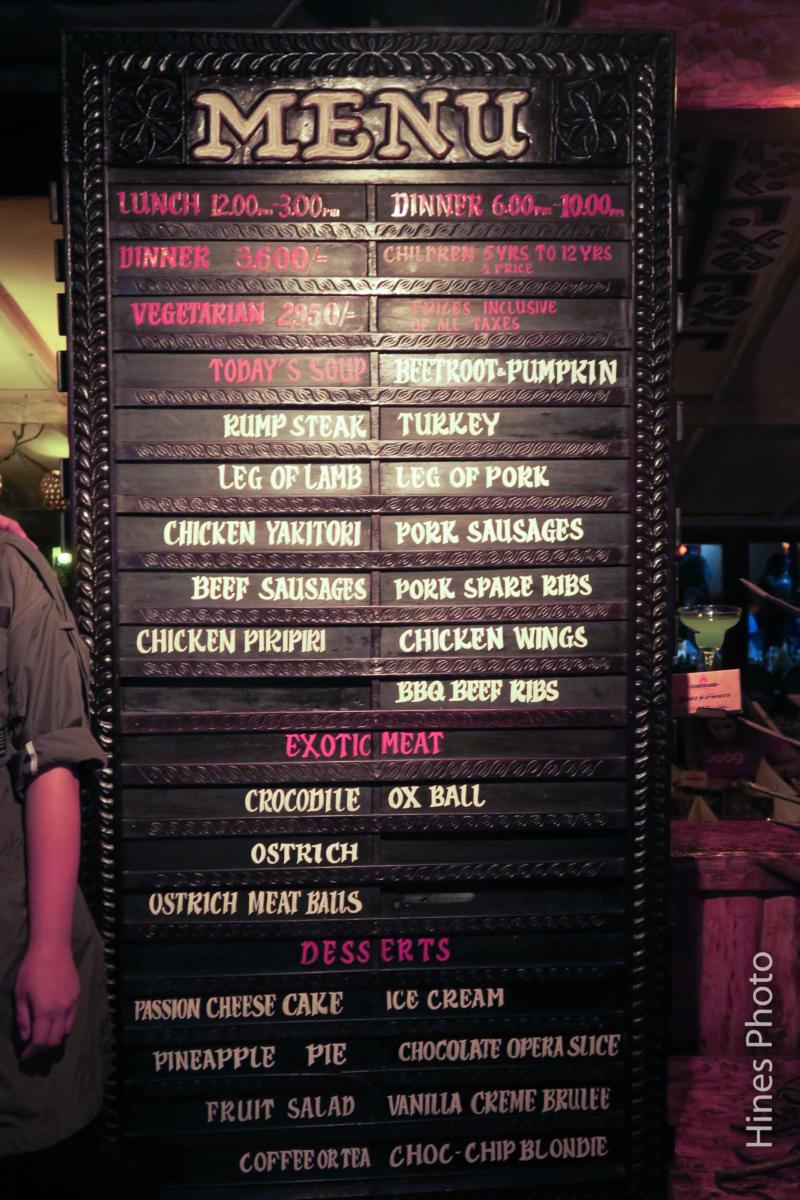 MENU
LUNCH 12.00PM-3.00PM DINNER 6.00PM-10.00PM
DINNER 3,600/= CHILDREN 5YRS TO 12YRS
½ PRICE
VEGETARIAN 2950/= PRICES INCLUSIVE
OF ALL TAXES
TODAY'S SOUP BEETROOT&PUMPKIN
RUMP STEAK TURKEY
LEG OF LAMB LEG OF PORK
CHICKEN YAKITORI PORK SAUSAGES
BEEF SAUSAGES PORK SPARE RIBS
CHICKEN PIRIPIRI CHICKEN WINGS
BBQ BEEF RIBS
EXOTIC MEAT
CROCODILE OX BALL
OSTRICH
OSTRICH MEAT BALLS
DESSERTS
PASSION CHEESE CAKE ICE CREAM
PINEAPPLE PIE CHOCOLATE OPERA SLICE
FRUIT SALAD VANILLA CREME BRULEE
COFFEE OR TEA CHOC-CHIP BLONDIE
Hines Photo